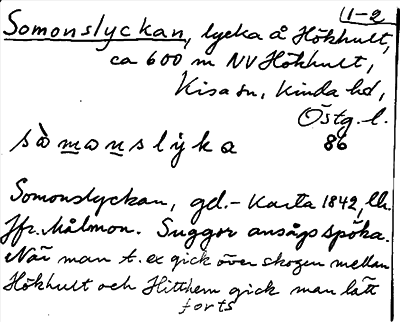 1-2
Somonslyckan, lycka å Hökhult,
ca 600 m NV Hökhult,
Kisa sn, Kinda hd,
Östg. l.
sò m o n s l y k a 86
Somonslyckan, gd.- Karta 1842,
Jfr. Målmon. Suggor ansågs spöka.
När man t. ex gick över skogen mellan
Hökhult och Hitthem gick man lätt
forts